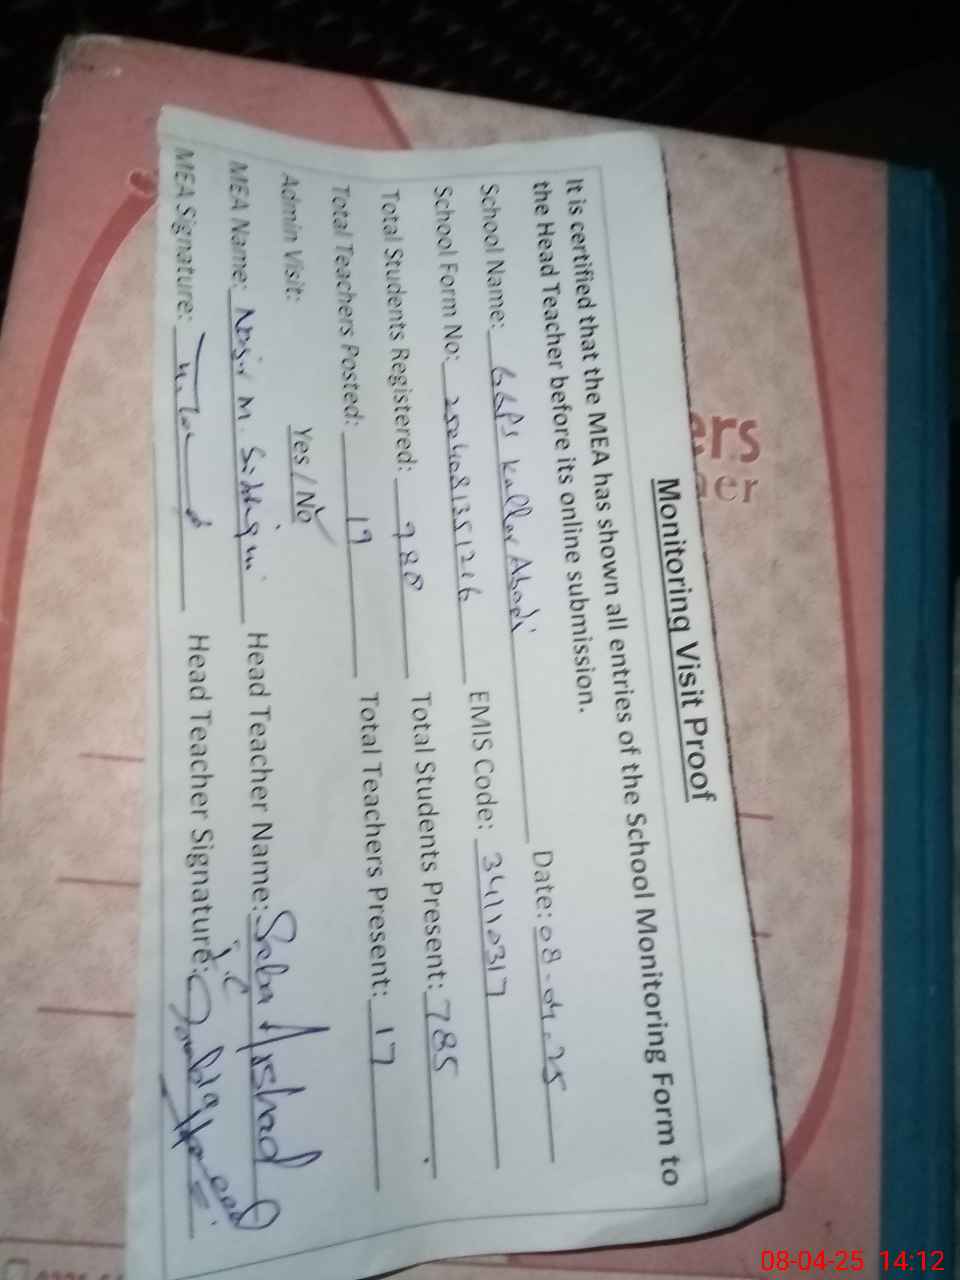 ers
er
Monitoring Visit Proof
It is certified that the MEA has shown all entries of the School Monitoring Form to
the Head Teacher before its online submission.
School Name: GGPS Kallar Abadi Date: 08-04-25
School Form No: EMIS Code: 34110317
Total Students Registered: 980 Total Students Present: 785
Total Teachers Posted: 19 Total Teachers Present: 17
Admin Visit: Yes / No
MEA Name: Nasir M. Siddiqui Head Teacher Name: Saba Arshad
MEA Signature: Head Teacher Signature:
08-04-25 14:12